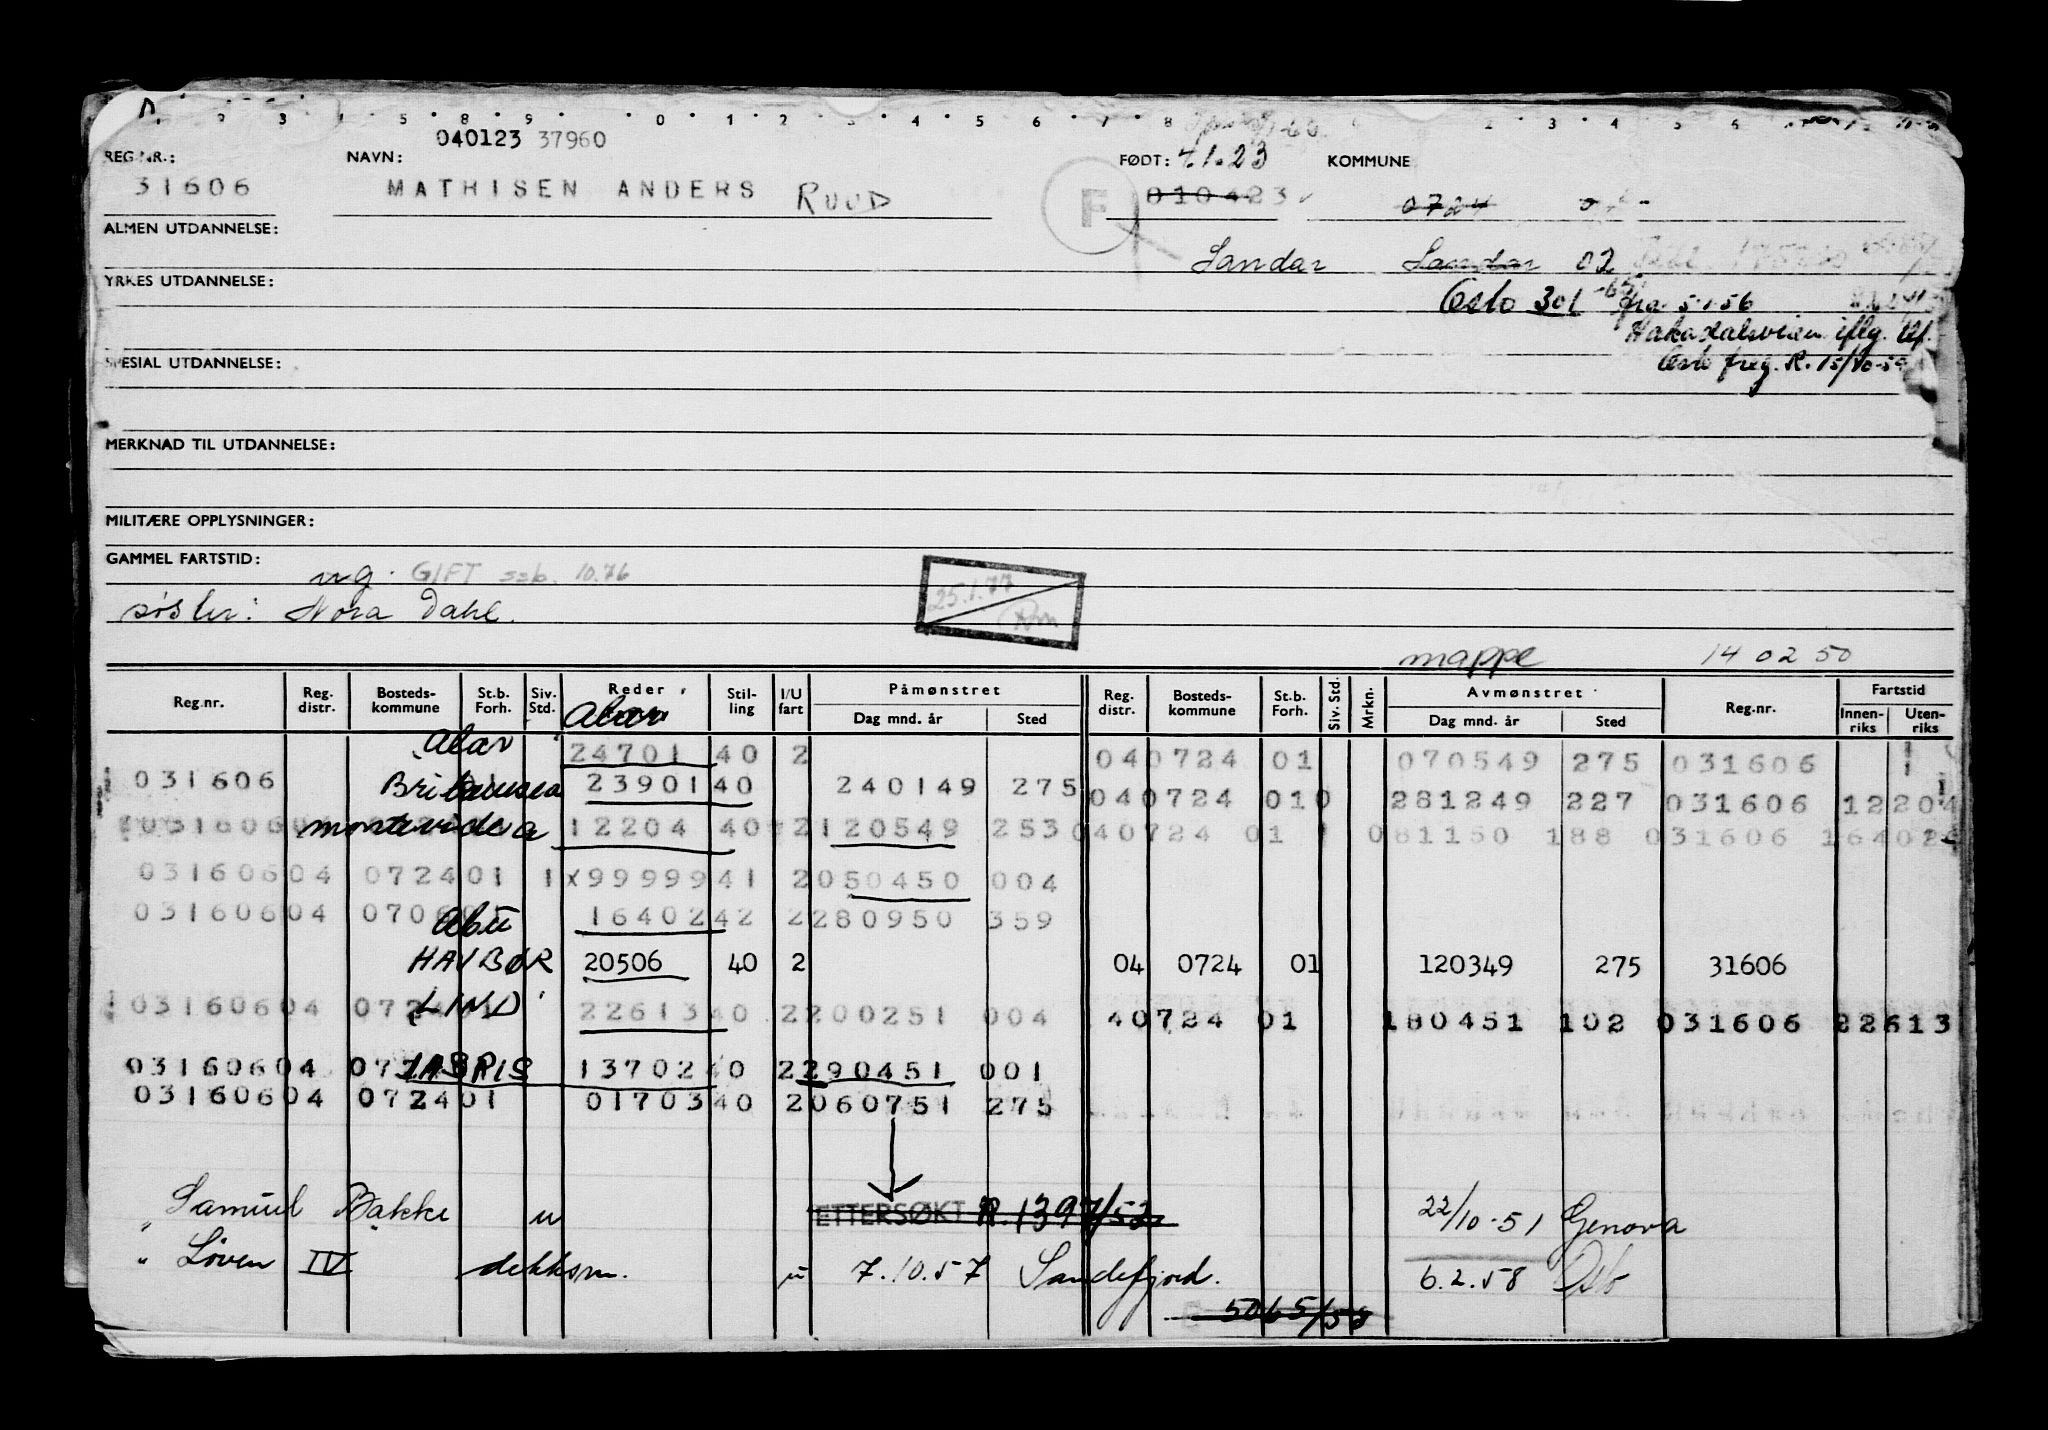 040123 37960
REG.NR.: NAVN: FØDT: 4.1.23 KOMMUNE
31606 MATHISEN ANDERS RUUD F 010423 0724
ALMEN UTDANNELSE:
Sandar Sandar 02
YRKES UTDANNELSE:
Oslo 301 fra 5.1.56
Hakadalsveien iflg. Af.
SPESIAL UTDANNELSE: Oslo freg. R. 15/10-59
MERKNAD TIL UTDANNELSE:
MILITÆRE OPPLYSNINGER:
GAMMEL FARTSTID:
ug. GIFT ssb. 10.76
25.1.77
søster: Nora Dahl.
mappe 14 02 50
Reg.nr. Reg. distr. Bosteds- kommune St.b. Forh. Siv. Std. Reder Stil- ling I/U fart Påmønstret Dag mnd. år Sted Reg. distr. Bosteds- kommune St.b. Forh. Siv. Std. Mrkn. Avmønstret Dag mnd. år Sted Reg.nr. Fartstid Innen- riks Uten- riks
Abar
Abar 24701 40 2 040724 01 070549 275 031606
031606 Britannia 23901 40 240149 275 040724 010 281249 227 031606 12204
03160604 montevidea 12204 40 2 120549 253 040724 01 081150 188 031606 16402
03160604 072401 1 x99999 41 2 050450 004
03160604 0706 Abu 16402 42 2 280950 359
HAVBØR 20506 40 2 04 0724 01 120349 275 31606
03160604 0724 LIND 22613 40 2 200251 004 40724 01 180451 102 031606 22613
03160604 072 IASRIS 13702 40 2 290451 001
03160604 072401 01703 40 2 060751 275
" Samuel Bakke u ETTERSØKT R.1397/52 22/10-51 Genova
" Løven IV dekksm. u 7.10.57 Sandefjord. 6.2.58 Oslo
5065/58